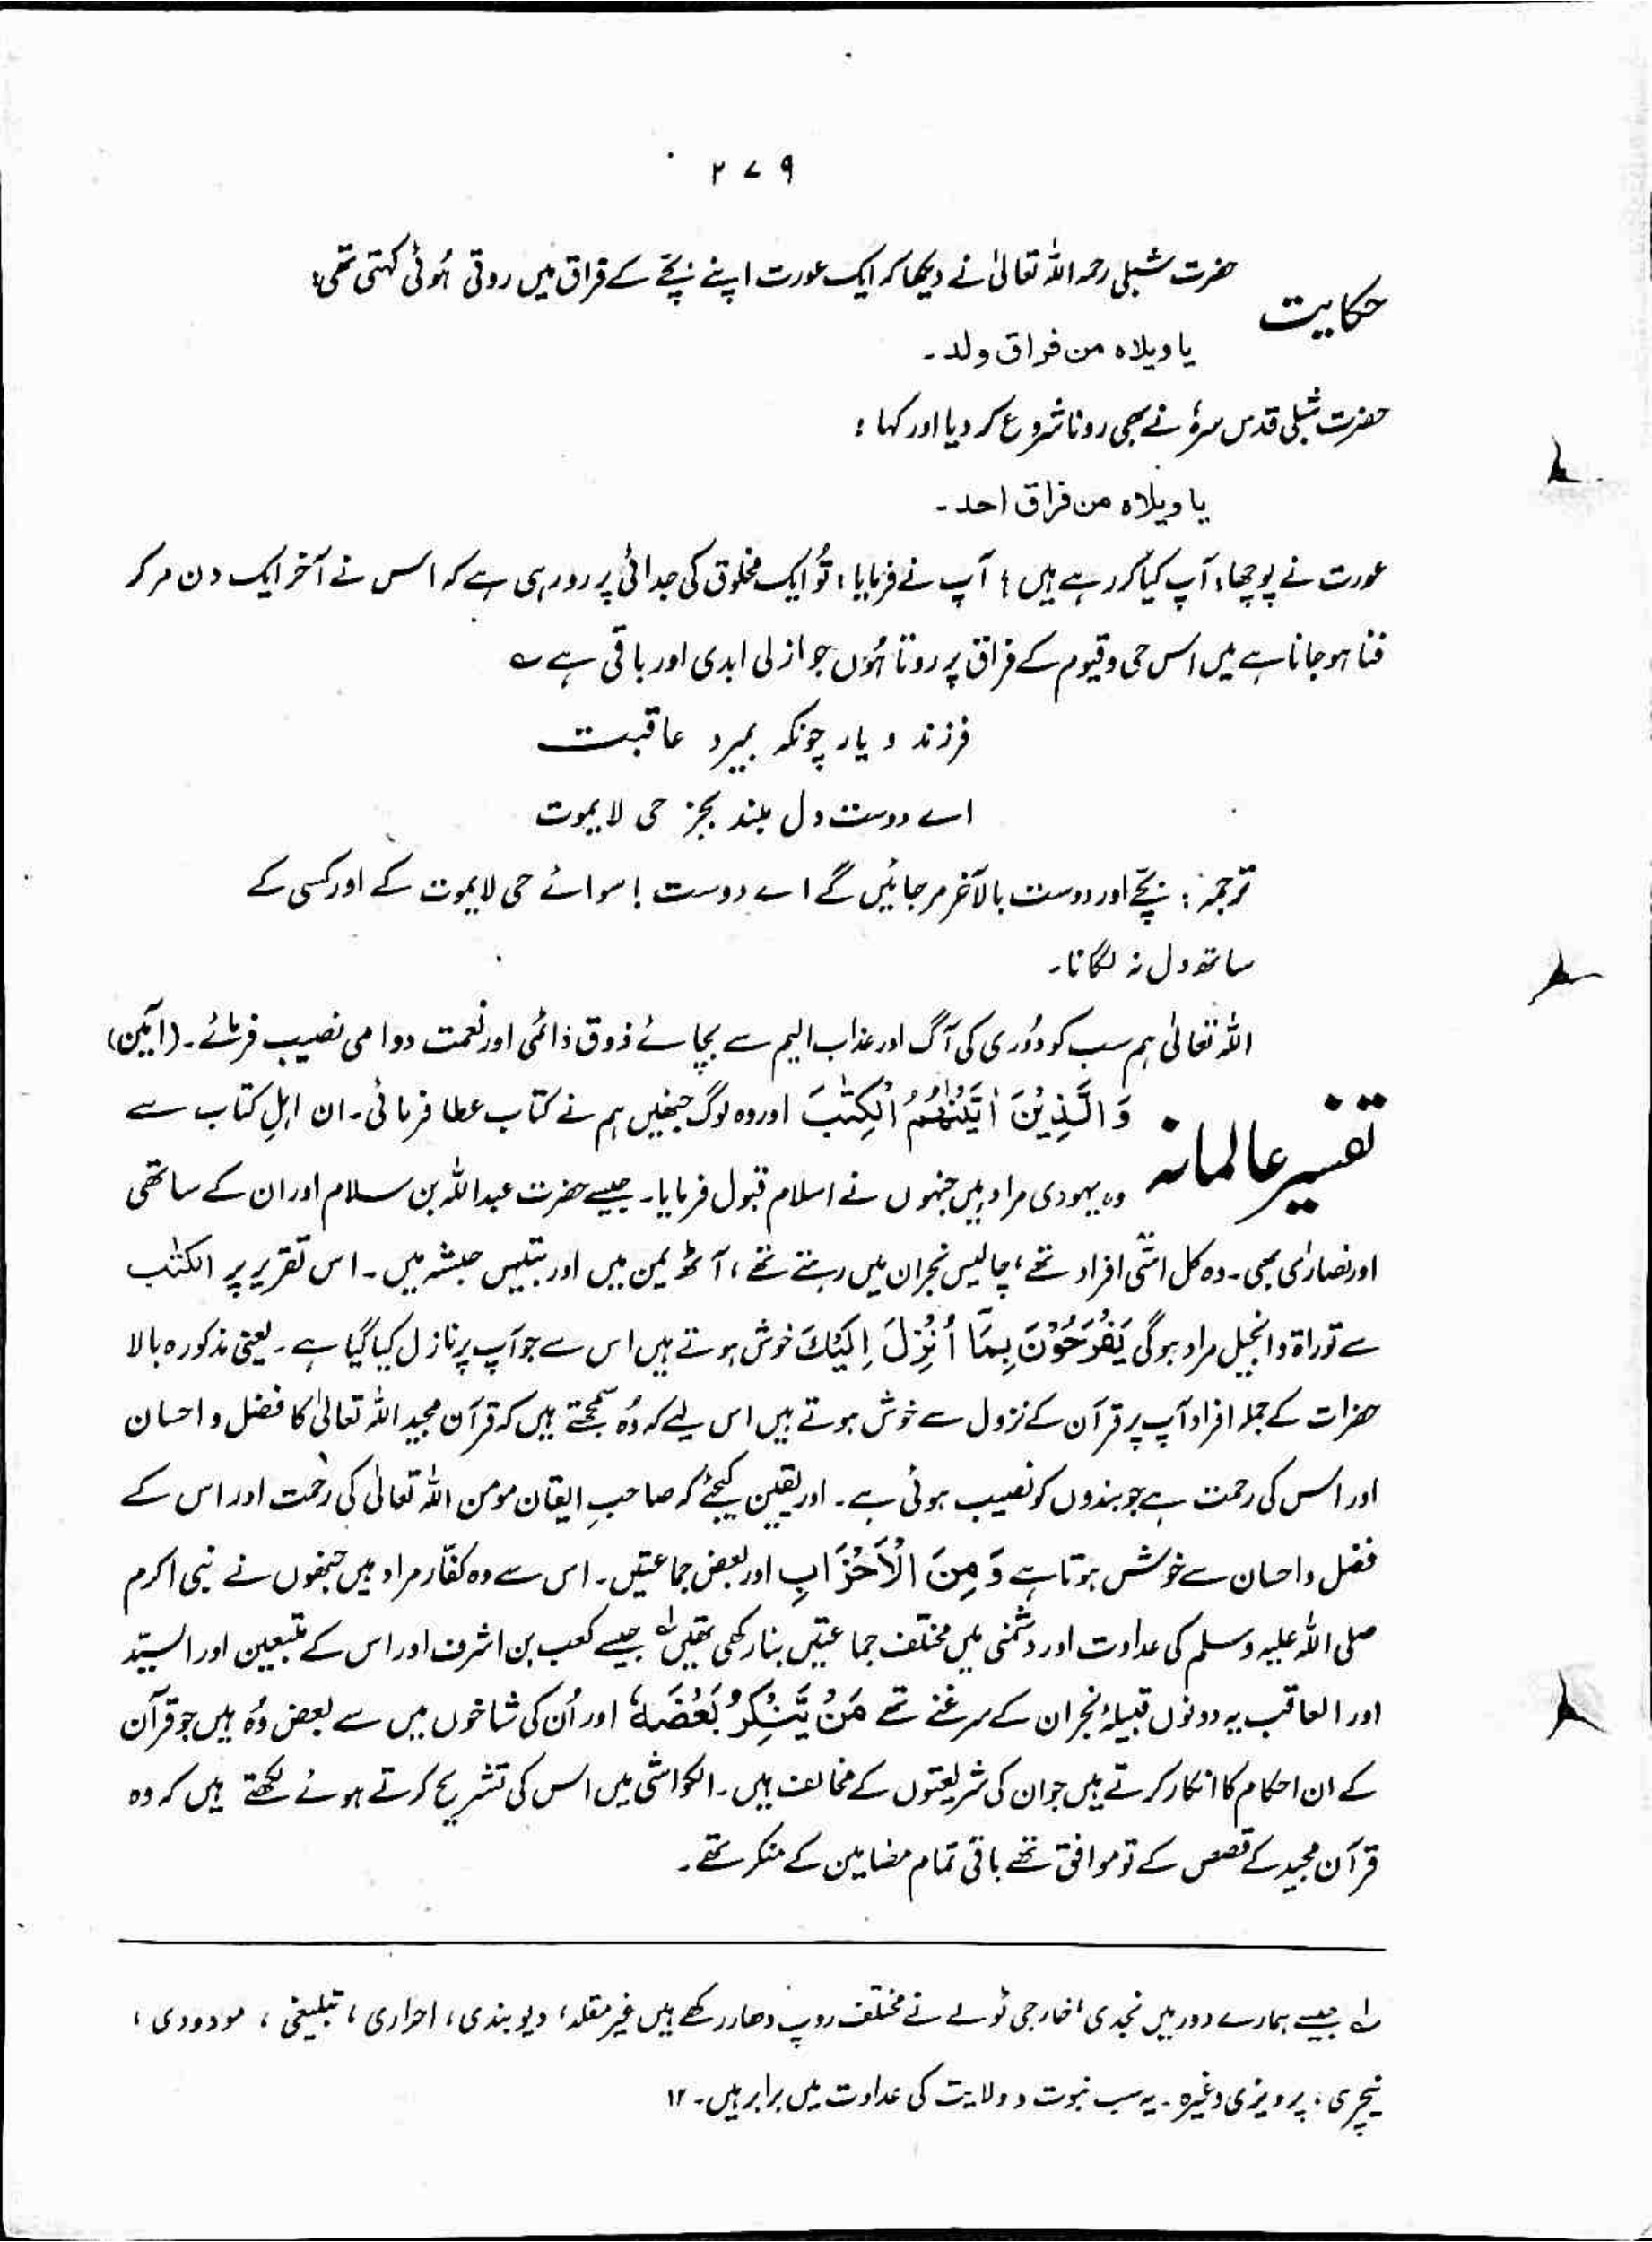 ۲۷۹
حکایت حضرت شبلی رحمہ اللہ تعالیٰ نے دیکھا کہ ایک عورت اپنے بچے کے فراق میں روتی ہُوئی کہتی تھی:
یا ویلاہ من فراق ولد۔
حضرت شبلی قدس سرہٗ نے بھی رونا شروع کر دیا اور کہا:
یا ویلاہ من فراق احد۔
عورت نے پوچھا: آپ کیا کر رہے ہیں؟ آپ نے فرمایا: تُو ایک مخلوق کی جدائی پر رو رہی ہے کہ اس نے آخر ایک دن مر کر
فنا ہو جانا ہے میں اس حی و قیوم کے فراق پر روتا ہُوں جو ازلی ابدی اور باقی ہے ؎
فرزند و یار چونکہ بمیرد عاقبت
اے دوست دل مبند بجز حی لا یموت
ترجمہ: بچّے اور دوست بالآخر مر جائیں گے اے دوست! سوائے حی لا یموت کے اور کسی کے
ساتھ دل نہ لگانا۔
اللہ تعالیٰ ہم سب کو دُوری کی آگ اور عذاب الیم سے بچائے ذوق دائمی اور نعمت دوامی نصیب فرمائے۔ (آمین)
تفسیر عالمانہ وَالَّذِیْنَ اٰتَیْنٰھُمُ الْکِتٰبَ اور وہ لوگ جنھیں ہم نے کتاب عطا فرمائی۔ ان اہلِ کتاب سے
وہ یہودی مراد ہیں جنہوں نے اسلام قبول فرمایا۔ جیسے حضرت عبداللہ بن سلام اور ان کے ساتھی
اور نصاریٰ بھی۔ وہ کل اسّی افراد تھے، چالیس نجران میں رہتے تھے، آٹھ یمن میں اور بتیس حبشہ میں۔ اس تقریر پر الکتٰب
سے توراۃ و انجیل مراد ہوگی یَفْرَحُوْنَ بِمَآ اُنْزِلَ اِلَیْكَ خوش ہوتے ہیں اس سے جو آپ پر نازل کیا گیا ہے۔ یعنی مذکورہ بالا
حضرات کے جملہ افراد آپ پر قرآن کے نزول سے خوش ہوتے ہیں اس لیے کہ وُہ سمجھتے ہیں کہ قرآن مجید اللہ تعالیٰ کا فضل و احسان
اور اس کی رحمت ہے جو بندوں کو نصیب ہوئی ہے۔ اور یقین کیجئے کہ صاحبِ ایقان مومن اللہ تعالیٰ کی رحمت اور اس کے
فضل و احسان سے خوش ہوتا ہے وَمِنَ الْاَحْزَابِ اور بعض جماعتیں۔ اس سے وہ کفّار مراد ہیں جنھوں نے نبی اکرم
صلی اللہ علیہ وسلم کی عداوت اور دشمنی میں مختلف جماعتیں بنا رکھی تھیں؎۱ جیسے کعب بن اشرف اور اس کے متبعین اور السیّد
اور العاقب یہ دونوں قبیلۂ نجران کے سرغنے تھے مَنْ یُّنْکِرُ بَعْضَہٗ اور اُن کی شاخوں میں سے بعض وُہ ہیں جو قرآن
کے ان احکام کا انکار کرتے ہیں جو ان کی شریعتوں کے مخالف ہیں۔ الکواشی میں اس کی تشریح کرتے ہوئے لکھتے ہیں کہ وہ
قرآن مجید کے قصص کے تو موافق تھے باقی تمام مضامین کے منکر تھے۔
؎۱ جیسے ہمارے دور میں نجدی خارجی ٹولے نے مختلف روپ دھار رکھے ہیں غیر مقلد، دیوبندی، احراری، تبلیغی، مودودی،
نیچری، پرویزی وغیرہ۔ یہ سب نبوت و ولایت کی عداوت میں برابر ہیں۔ ۱۲